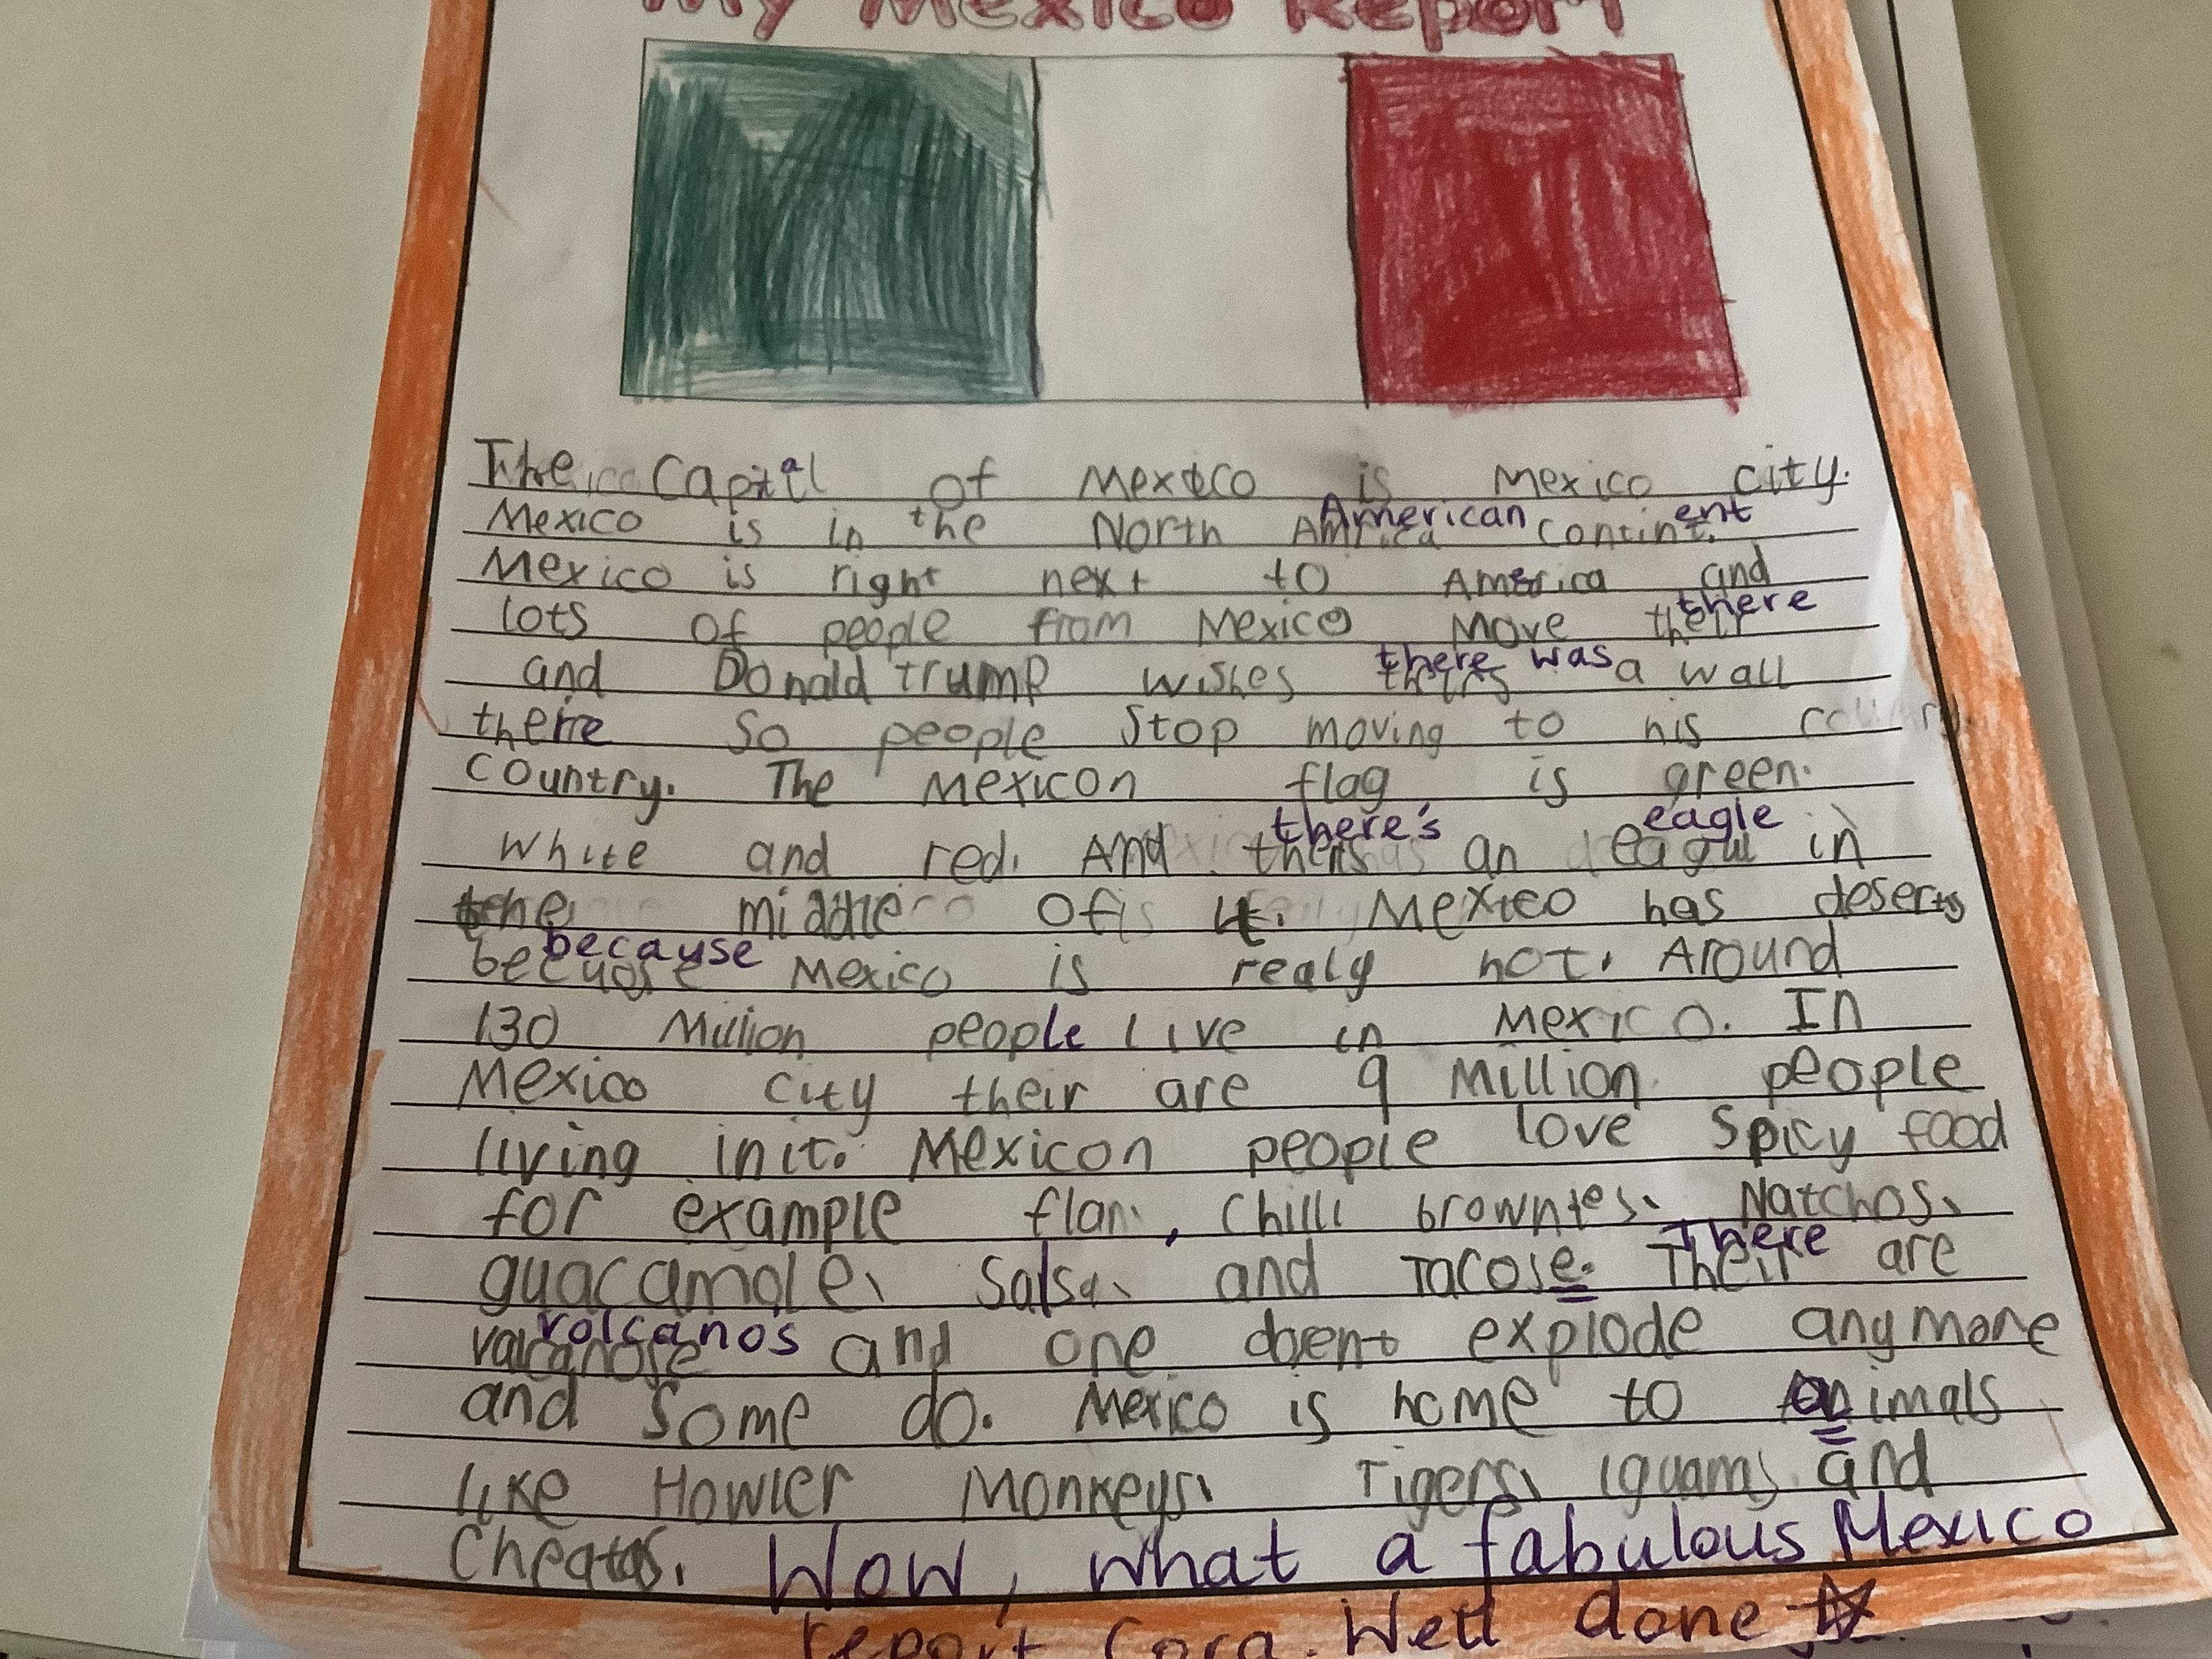 My Mexico Report
The Capital of Mexico is Mexico city.
American ent
Mexico is in the North America contint.
Mexico is right next to America and
there
lots of people from Mexico move their
there was
and Donald trump wishes theirs a wall
there so people stop moving to his country
country. The Mexicon flag is green.
there's eagle
white and red. And theirs an eagul in
the middle of it. Mexico has deserts
because
becuose Mexico is realy hot. Around
130 Million people live in Mexico. In
Mexico city their are 9 Million people
living in it. Mexicon people love Spicy food
for example flan, chilli brownies, Natchos,
There
guacamole, Salsa, and Tacose. Their are
volcanos
valcanose and one doent explode anymore
and some do. Mexico is home to animals
like Howler Monkeys, Tigers, and
Wow, what a fabulous Mexico
report Cora. Well done